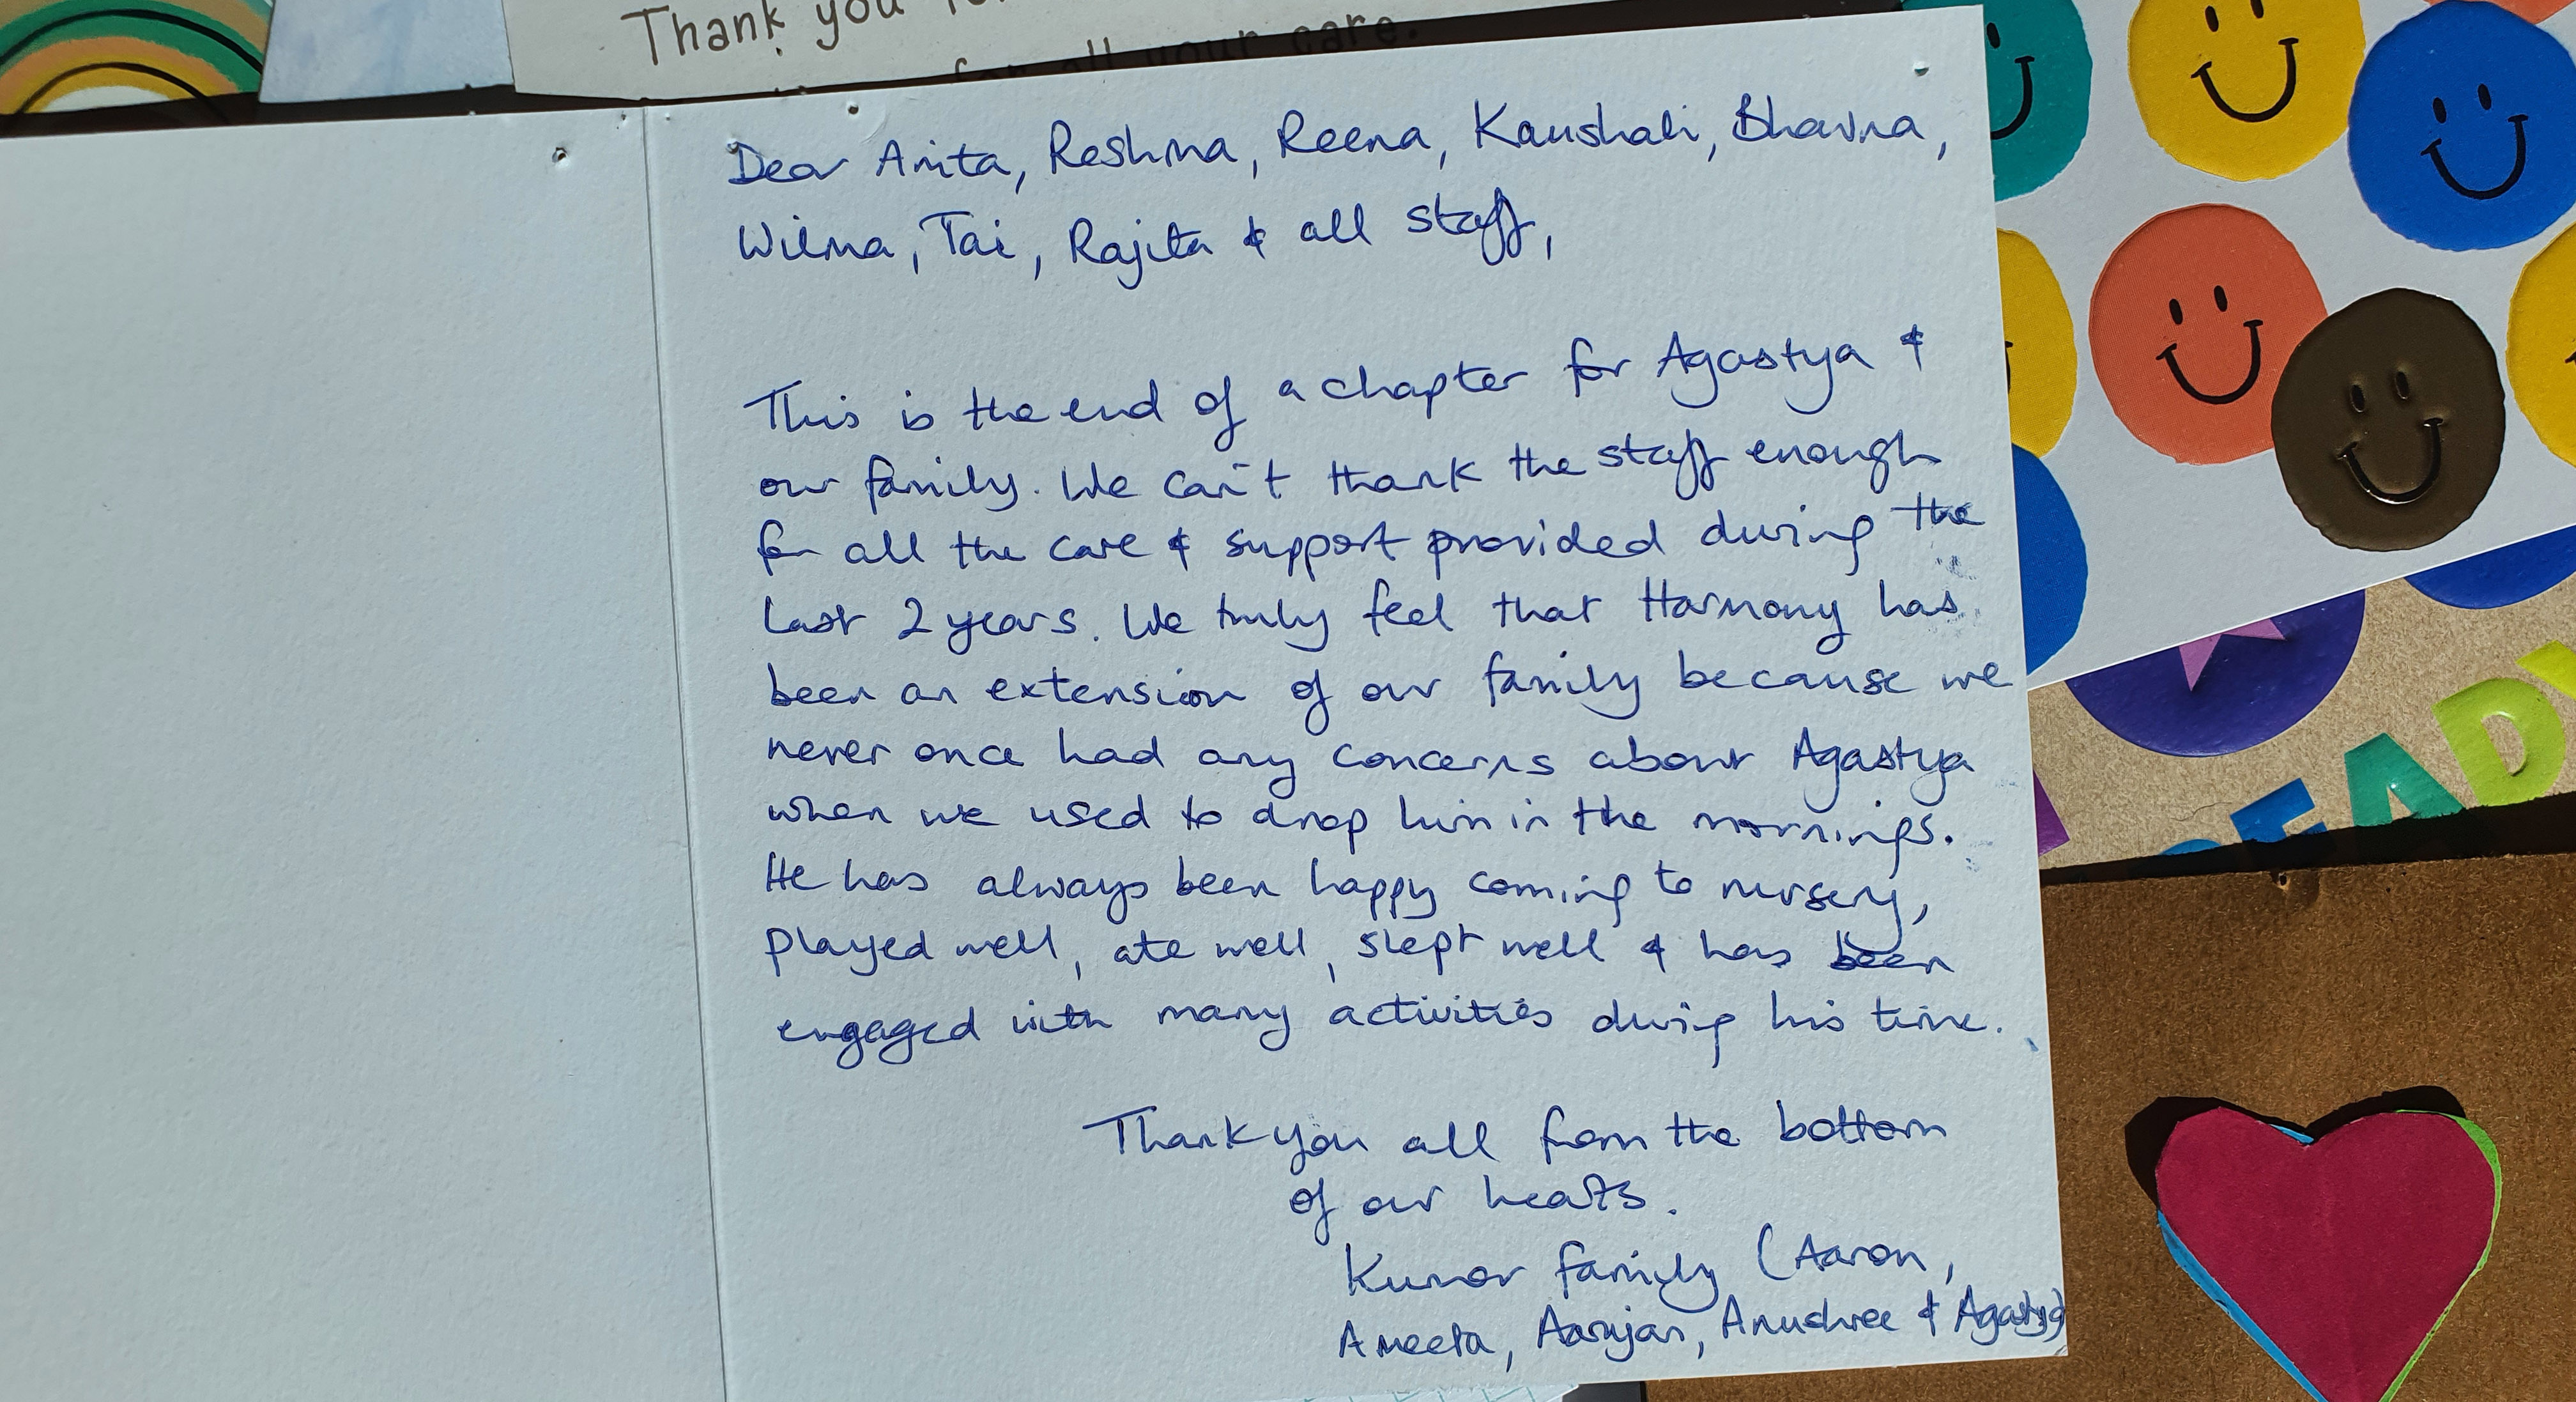 Thank you
for all your care.
Dear Anita, Reshma, Reena, Kaushali, Bhavna,
Wilma, Tai, Rajita & all staff,
This is the end of a chapter for Agastya &
our family. We can't thank the staff enough
for all the care & support provided during the
last 2 years. We truly feel that Harmony has
been an extension of our family because we
never once had any concerns about Agastya
when we used to drop him in the mornings.
He has always been happy coming to nursery,
played well, ate well, slept well & has been
engaged with many activities during his time.
Thank you all from the bottom
of our hearts.
Kumar family (Aaron,
Ameeta, Anushree & Agastya)